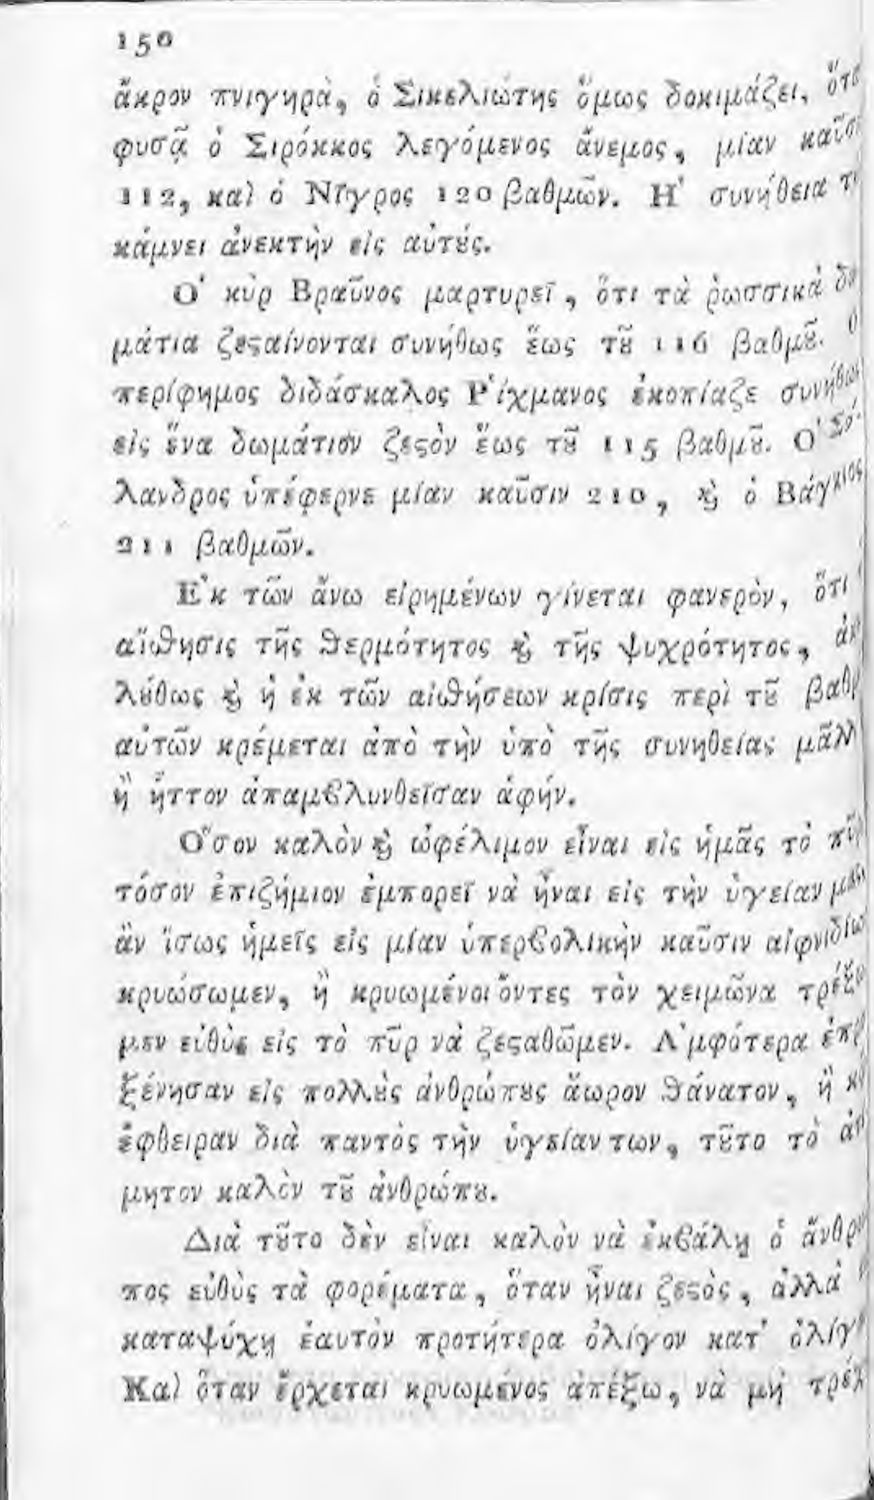 150
ἄκρον πνιγηρὰ, ὁ Σικελιώτης ὅμως δοκιμάζει, ὅτε
φυσᾷ ὁ Σιρόκκος λεγόμενος ἄνεμος, μίαν
112, καὶ ὁ Νῖγρος 120 βαθμῶν. Η῾ συνήθεια
κάμνει ἀνεκτὴν εἰς αὐτȣ́ς.
Ο῾ κὺρ Βραῦνος μαρτυρεῖ, ὅτι τὰ ῥωσσικὰ
μάτια ζεϛαίνονται συνήθως ἕως τȣ͂ 116 βαθμȣ͂. Ο῾
περίφημος διδάσκαλος Ρ῾ίχμανος ἐκοπίαζε συνήθως
εἰς ἕνα δωμάτιον ζεϛὸν ἕως τȣ͂ 115 βαθμȣ͂. Ο῾ Σό-
λανδρος ὑπέφερνε μίαν καῦσιν 210, ϗ ὁ Βάγκιος
211 βαθμῶν.
Ε᾿κ τῶν ἄνω εἰρημένων γίνεται φανερὸν, ὅτι
αἴσθησις τῆς θερμότητος ϗ τῆς ψυχρότητος,
λȣ́θως ϗ ἡ ἐκ τῶν αἰσθήσεων κρίσις περὶ τȣ͂
αὐτῶν κρέμεται ἀπὸ τὴν ὑπὸ τῆς συνηθείας μᾶλλ
ἢ ἧττον ἀπαμβλυνθεῖσαν ἁφήν.
Ο῞σον καλὸν ϗ ὠφέλιμον εἶναι εἰς ἡμᾶς τὸ πῦρ
τόσον ἐπιζήμιον ἐμπορεῖ νὰ ἦναι εἰς τὴν ὑγείαν μας
ἂν ἴσως ἡμεῖς εἰς μίαν ὑπερβολικὴν καῦσιν αἰφνιδίως
κρυώσωμεν, ἢ κρυωμένοι ὄντες τὸν χειμῶνα τρέξω
μεν εὐθὺς εἰς τὸ πῦρ νὰ ζεϛαθῶμεν. Α᾿μφότερα
ξένησαν εἰς πολλȣ̀ς ἀνθρώπȣς ἄωρον θάνατον, ἢ
ἔφθειραν διὰ παντὸς τὴν ὑγείαν των, τȣ͂το τὸ
μητον καλὸν τȣ͂ ἀνθρώπȣ.
Διὰ τȣ͂το δὲν εἶναι καλὸν νὰ ἐκβάλῃ ὁ ἄνθρω
πος εὐθὺς τὰ φορέματα, ὅταν ἦναι ζεϛὸς, ἀλλὰ
καταψύχῃ ἑαυτὸν προτήτερα ὀλίγον κατ᾿ ὀλίγο
Καὶ ὅταν ἔρχεται κρυωμένος ἀπέξω, νὰ μὴ τρέχ